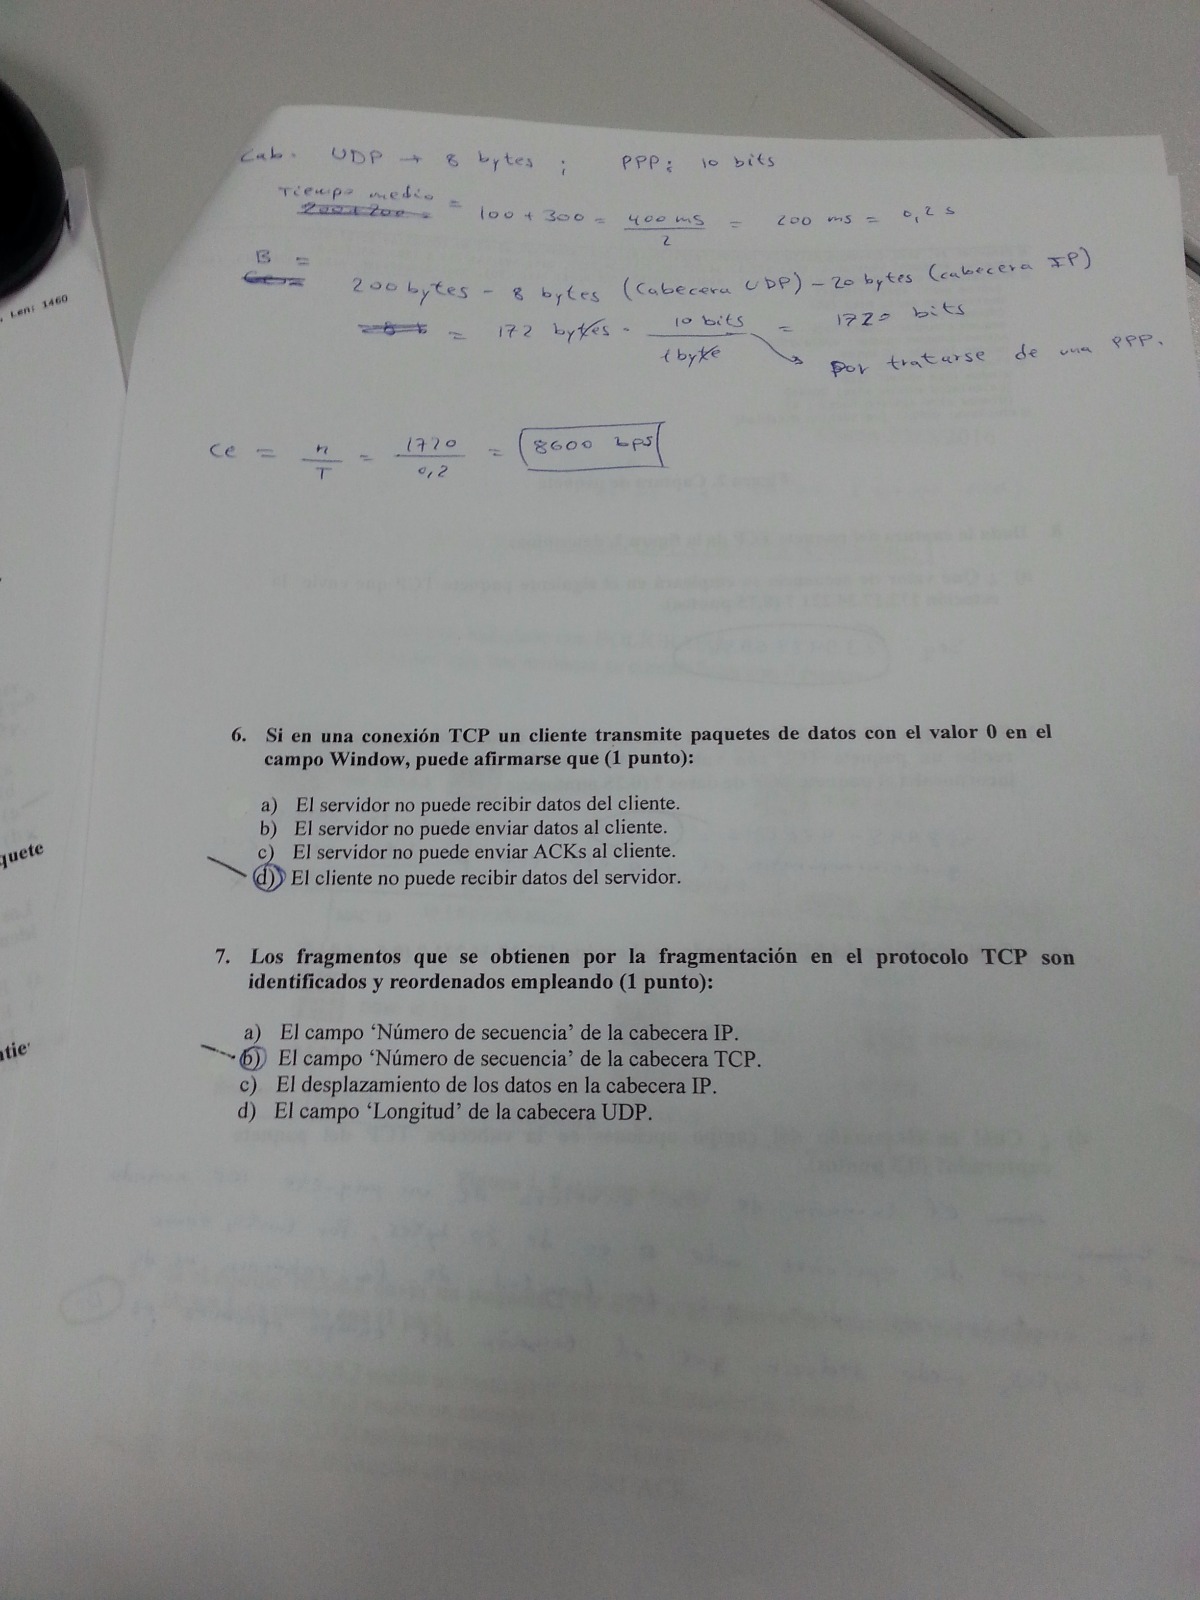 Cab. UDP → 8 bytes ; PPP: 10 bits
Tiempo medio = 100 + 300 = 400 ms / 2 = 200 ms = 0,2 s
200+200 =
B =
200 bytes - 8 bytes (cabecera UDP) - 20 bytes (cabecera IP)
= 172 bytes · 10 bits / 1 byte = 1720 bits
por tratarse de una PPP.
Ce = n / T = 1720 / 0,2 = 8600 bps
6. Si en una conexión TCP un cliente transmite paquetes de datos con el valor 0 en el
campo Window, puede afirmarse que (1 punto):
a) El servidor no puede recibir datos del cliente.
b) El servidor no puede enviar datos al cliente.
c) El servidor no puede enviar ACKs al cliente.
d) El cliente no puede recibir datos del servidor.
7. Los fragmentos que se obtienen por la fragmentación en el protocolo TCP son
identificados y reordenados empleando (1 punto):
a) El campo ‘Número de secuencia’ de la cabecera IP.
b) El campo ‘Número de secuencia’ de la cabecera TCP.
c) El desplazamiento de los datos en la cabecera IP.
d) El campo ‘Longitud’ de la cabecera UDP.
Len: 1460
quete